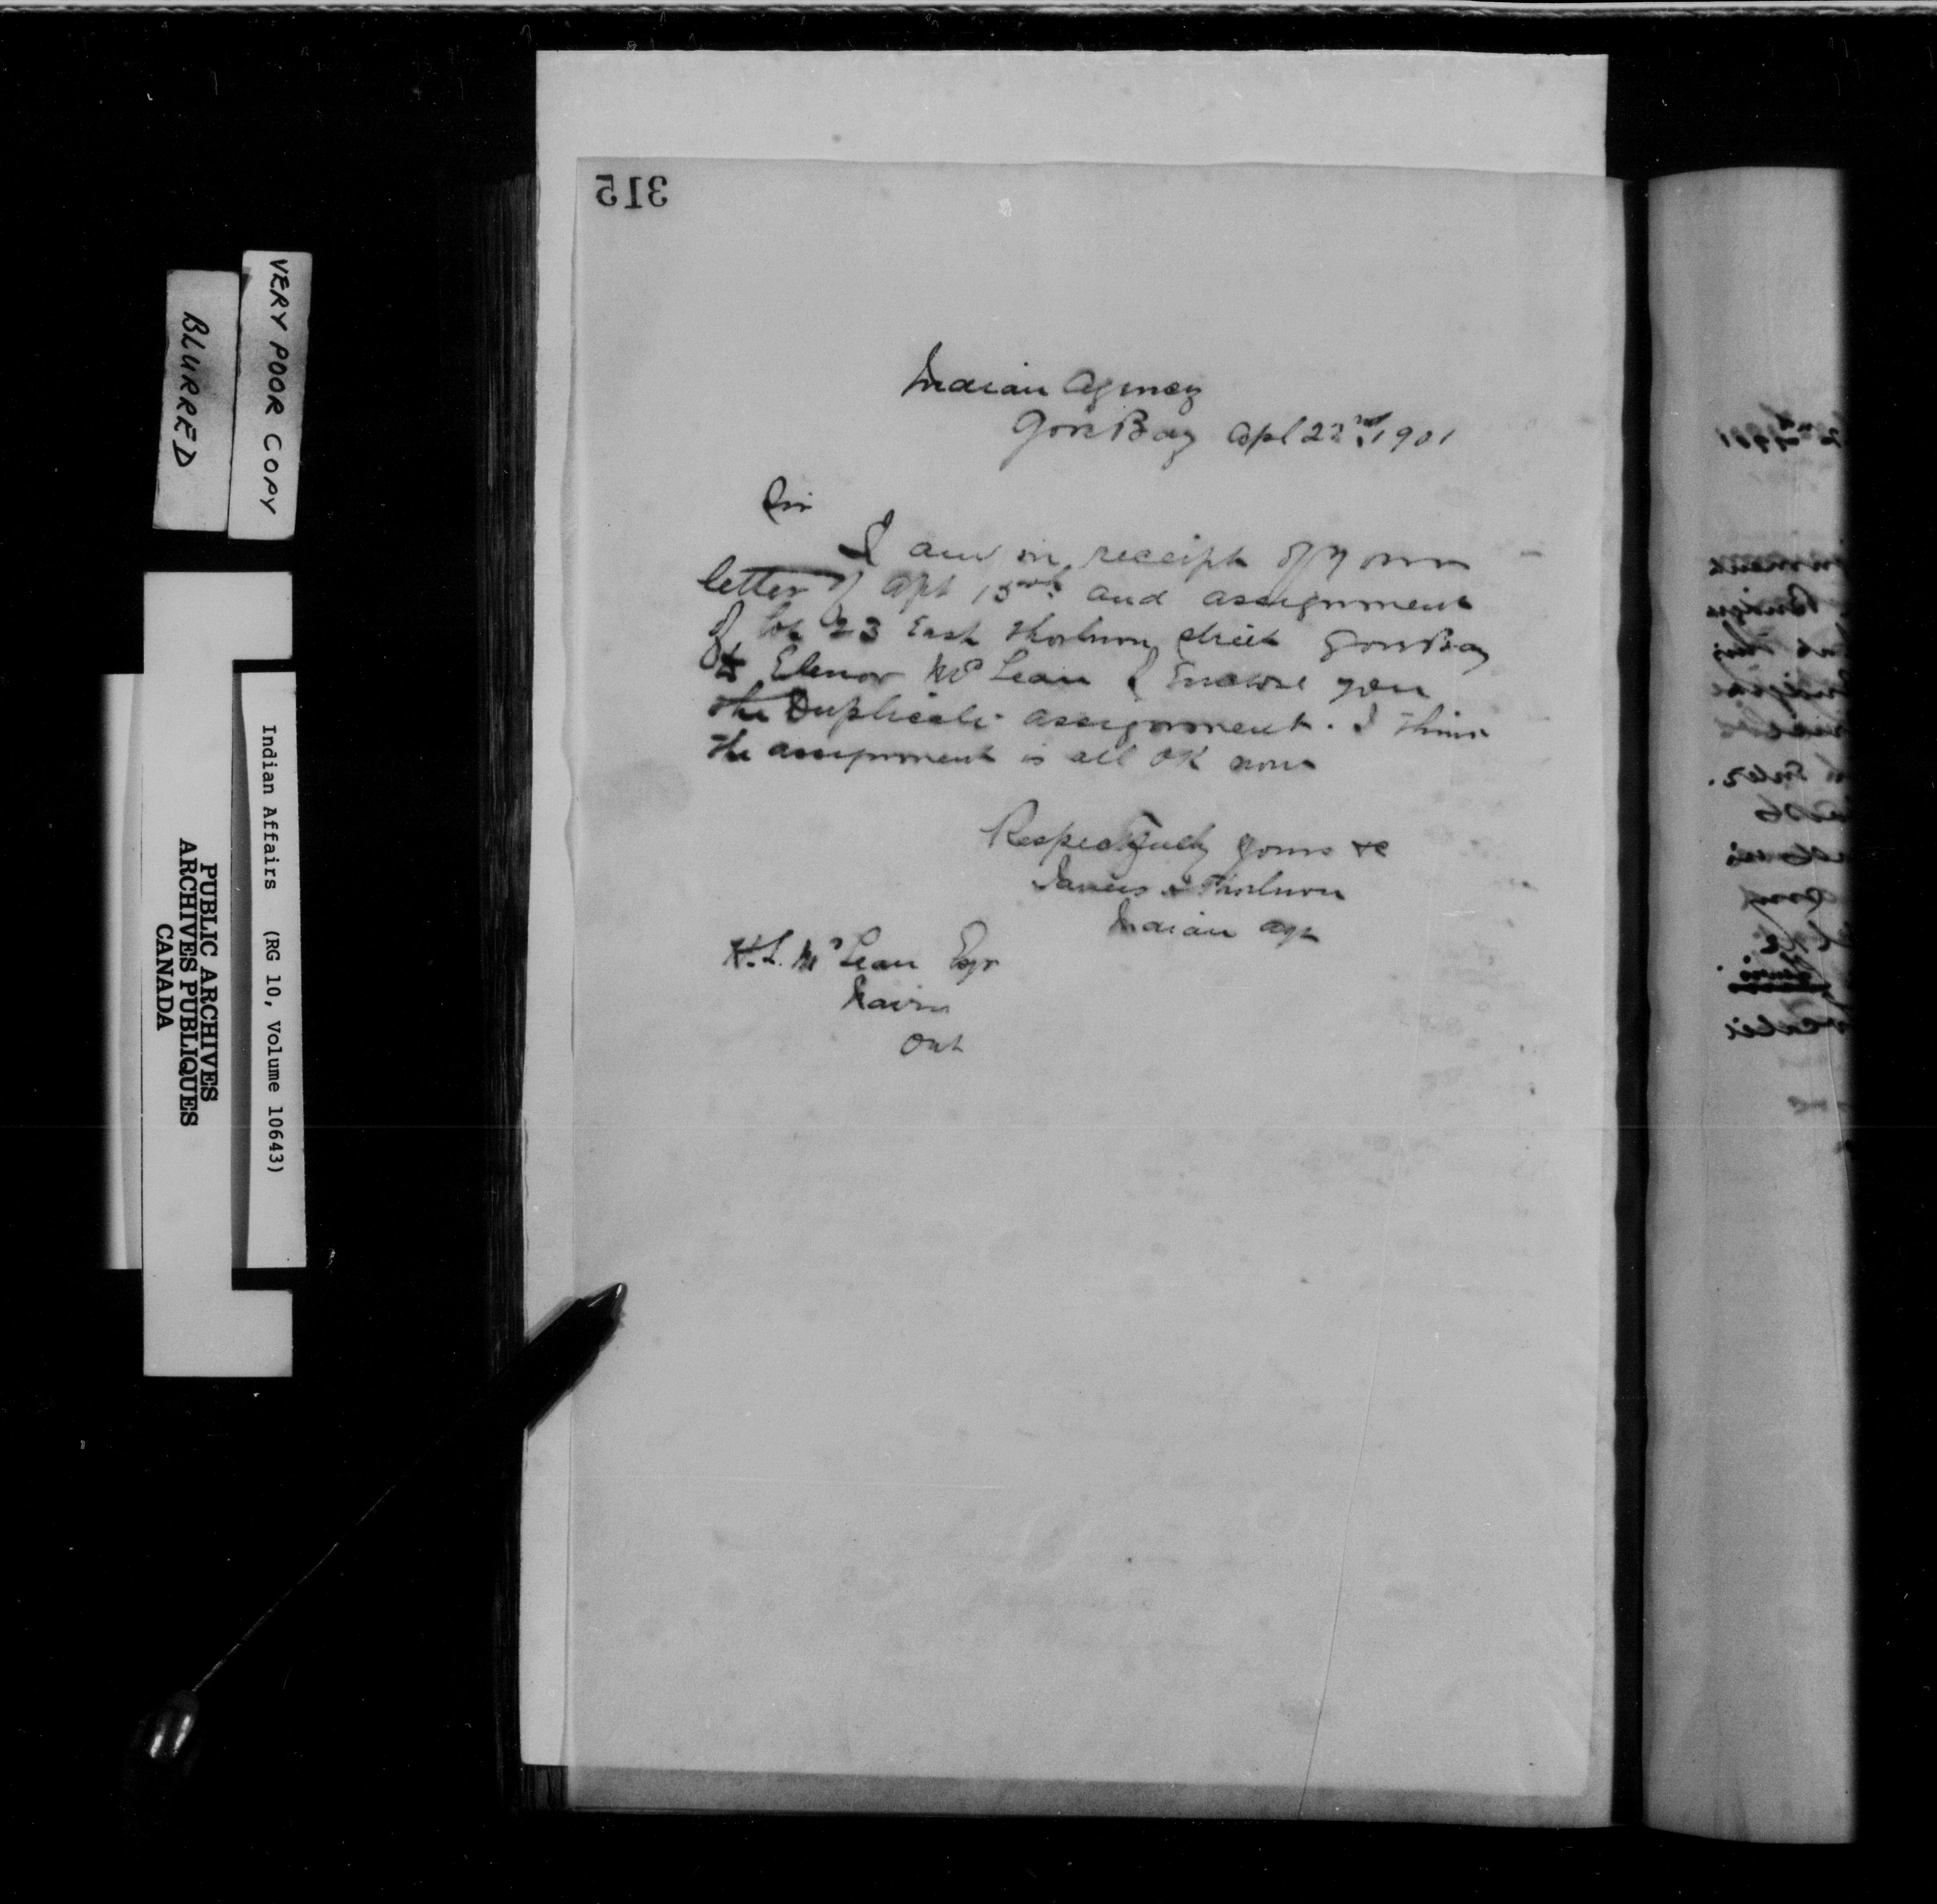 315
Indian Agency
Gore Bay Apl 22nd 1901
Sir
I am in receipt of your
letter of Apl 15th and assignment
of lot 23 East Thorburn street Gore Bay
to Elenor McLean I Enclose you
the Duplicate assignment. I think
the assignment is all OK now
Respectfully yours &c
James Thorburn
Indian Agt
H. L. McLean Esqr
Nairn
Ont
VERY POOR COPY
BLURRED
Indian Affairs (RG 10, Volume 10643)
PUBLIC ARCHIVES
ARCHIVES PUBLIQUES
CANADA